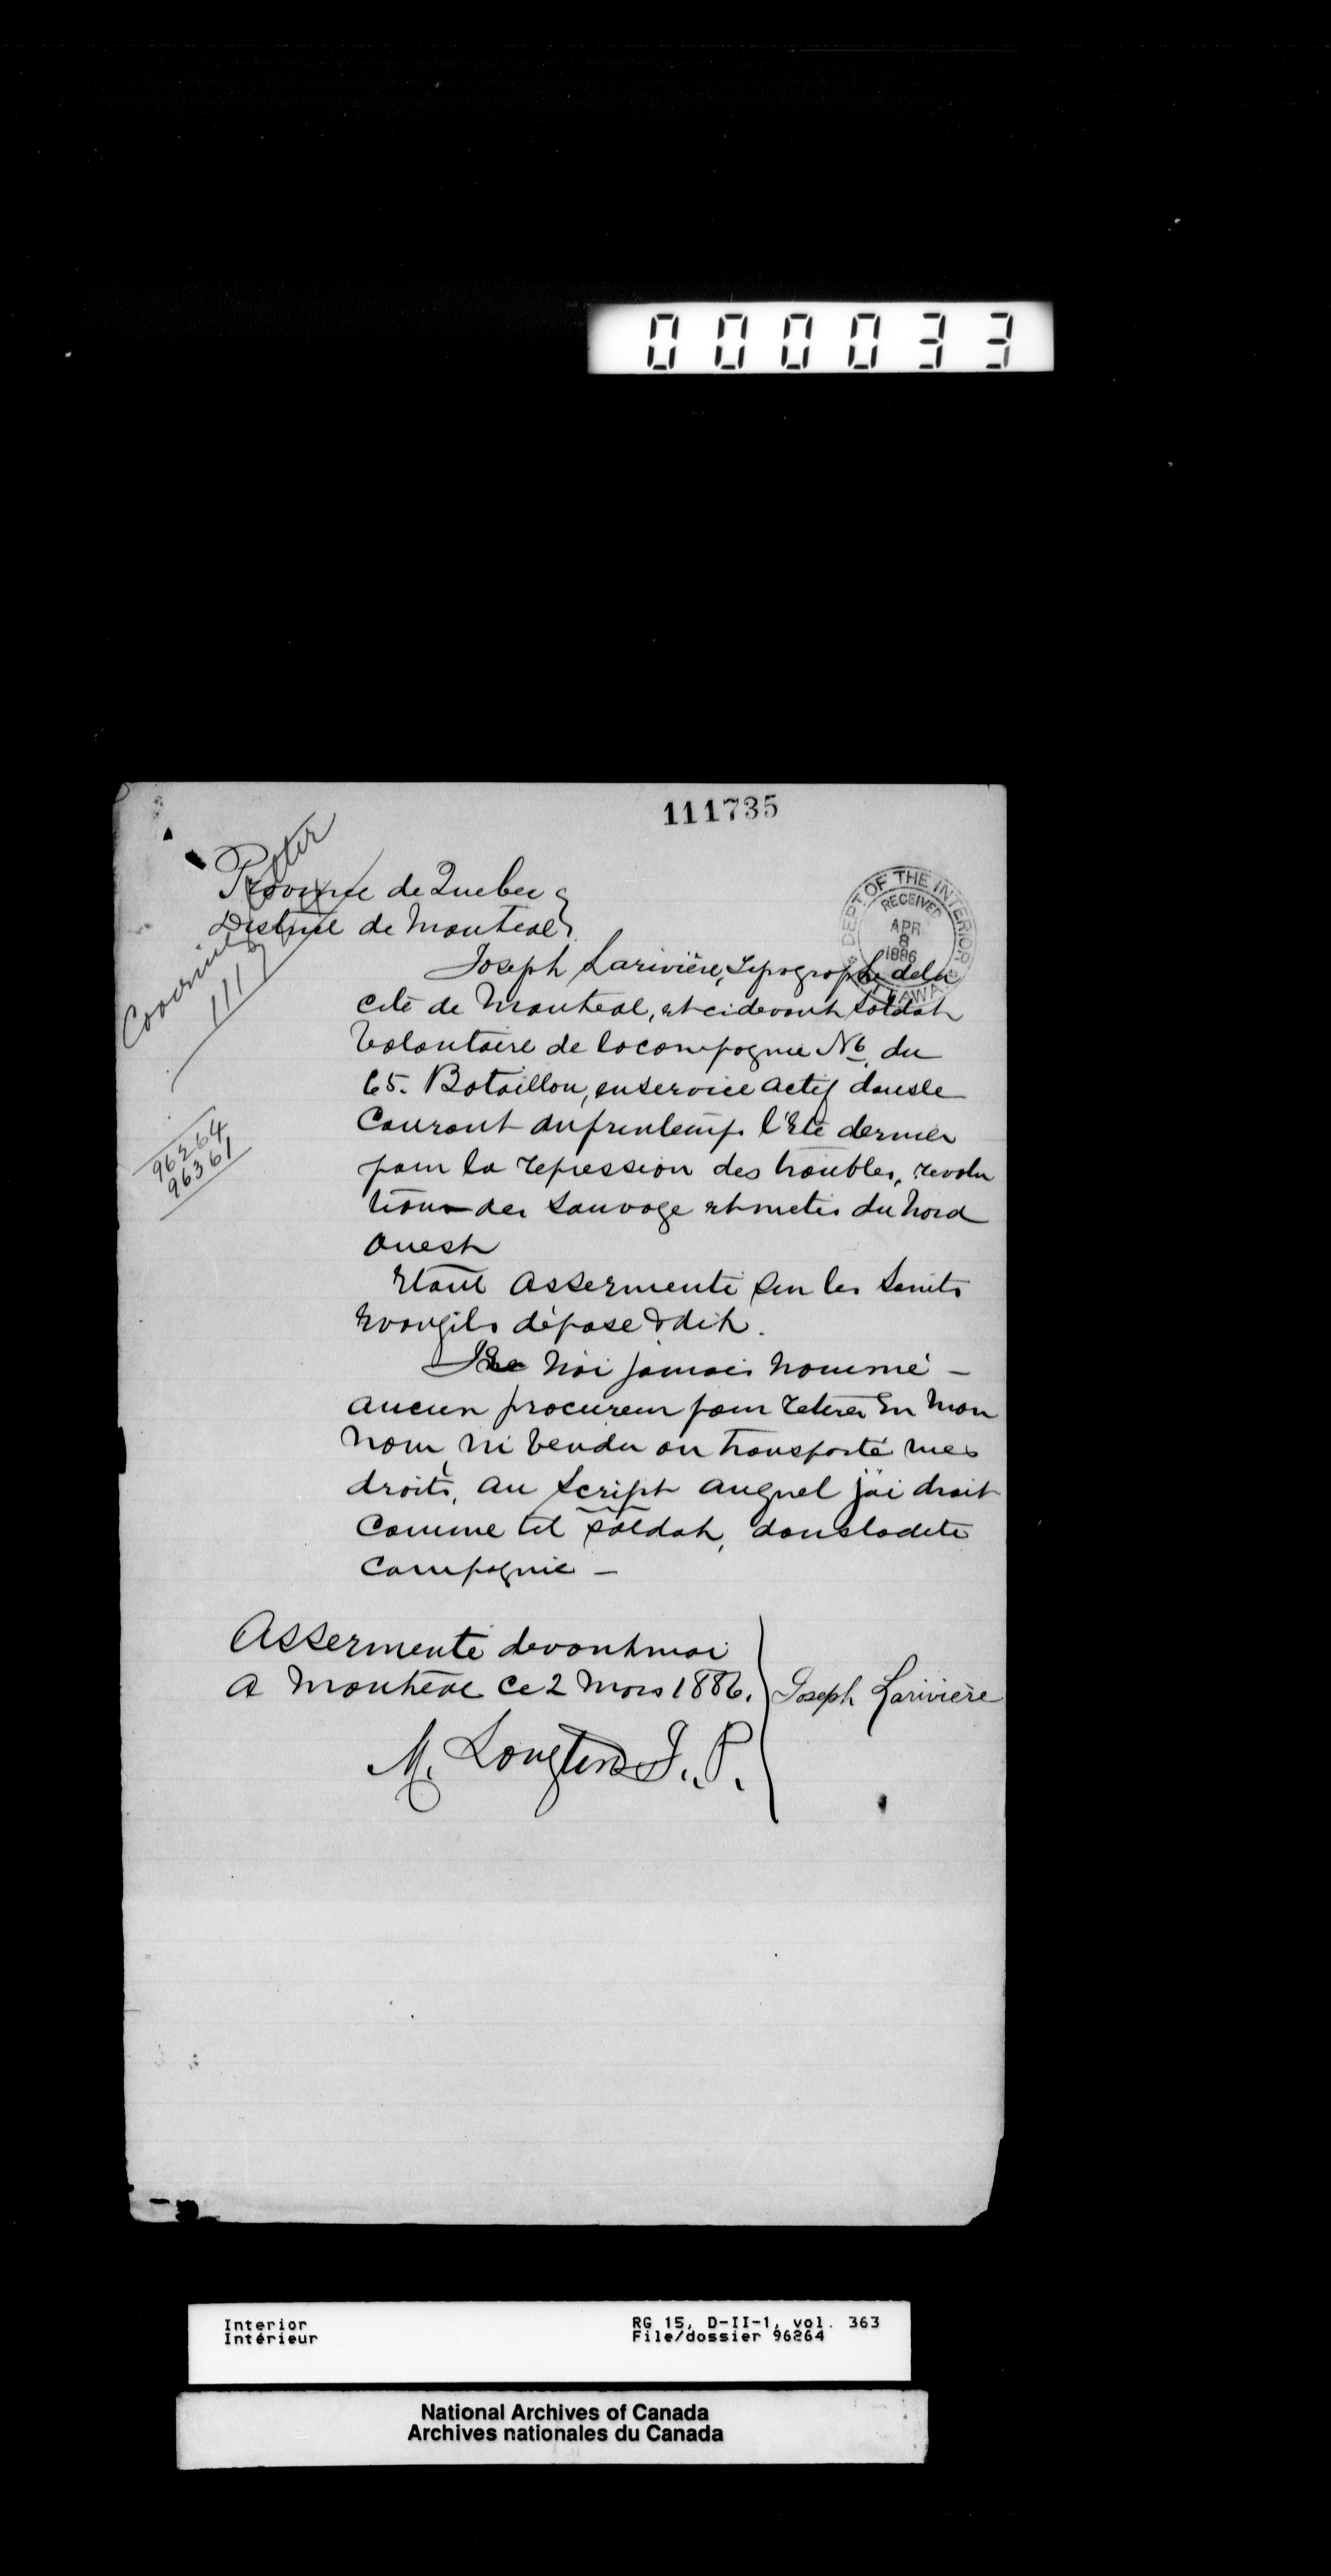 000033
111735
Province de Quebec
District de Montreal
DEPT OF THE INTERIOR
RECEIVED
APR
8
1886
OTTAWA
Joseph Larivière, Typographe de la
cité de Montreal, et cidevant soldat
Volontaire de la compagnie No 6, du
65. Bataillon, en service actif dans le
Courant du printemps l'Eté dernier
pour la repression des troubles, revolu
tion des sauvage et metis du Nord
Ouest
Etant assermenté sur les Saints
Evangils dépose & dit.
Je n'ai jamais nommé —
aucun procureur pour retirer en mon
nom, ni vendu ou transporté mes
droits, au script auquel j'ai droit
Comme tel soldat, dans ladite
Compagnie —
96264
96361
Assermenté devant moi
a Montréal ce 2 Mars 1886.
Joseph Larivière
M. Longtin J. P.
Interior
Intérieur
RG 15, D-II-1, vol. 363
File/dossier 96264
National Archives of Canada
Archives nationales du Canada